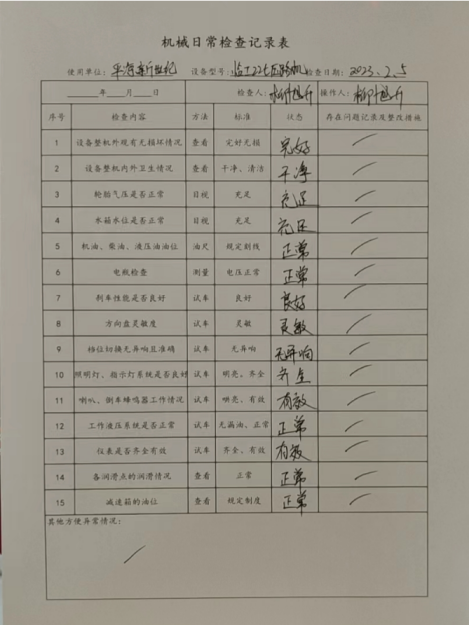 机械日常检查记录表
使用单位：平海新世纪 设备型号：临工22t压路机 检查日期：2023.2.5
年 月 日 检查人： 操作人：
序号 检查内容 方法 标准 状态 存在问题记录及整改措施
1 设备整机外观有无损坏情况 查看 完好无损 完好
2 设备整机内外卫生情况 查看 干净、清洁 干净
3 轮胎气压是否正常 目视 充足 充足
4 水箱水位是否正常 目视 充足 充足
5 机油、柴油、液压油油位 油尺 规定刻线 正常
6 电瓶检查 测量 电压正常 正常
7 刹车性能是否良好 试车 良好 良好
8 方向盘灵敏度 试车 灵敏 灵敏
9 档位切换无异响且准确 试车 无异响 无异响
10 照明灯、指示灯系统是否良好 试车 明亮、齐全 齐全
11 喇叭、倒车蜂鸣器工作情况 试车 哄亮、有效 有效
12 工作液压系统是否正常 试车 无漏油、正常 正常
13 仪表是否齐全有效 试车 齐全、有效 有效
14 各润滑点的润滑情况 查看 正常 正常
15 减速箱的油位 查看 规定制度 正常
其他方便异常情况：